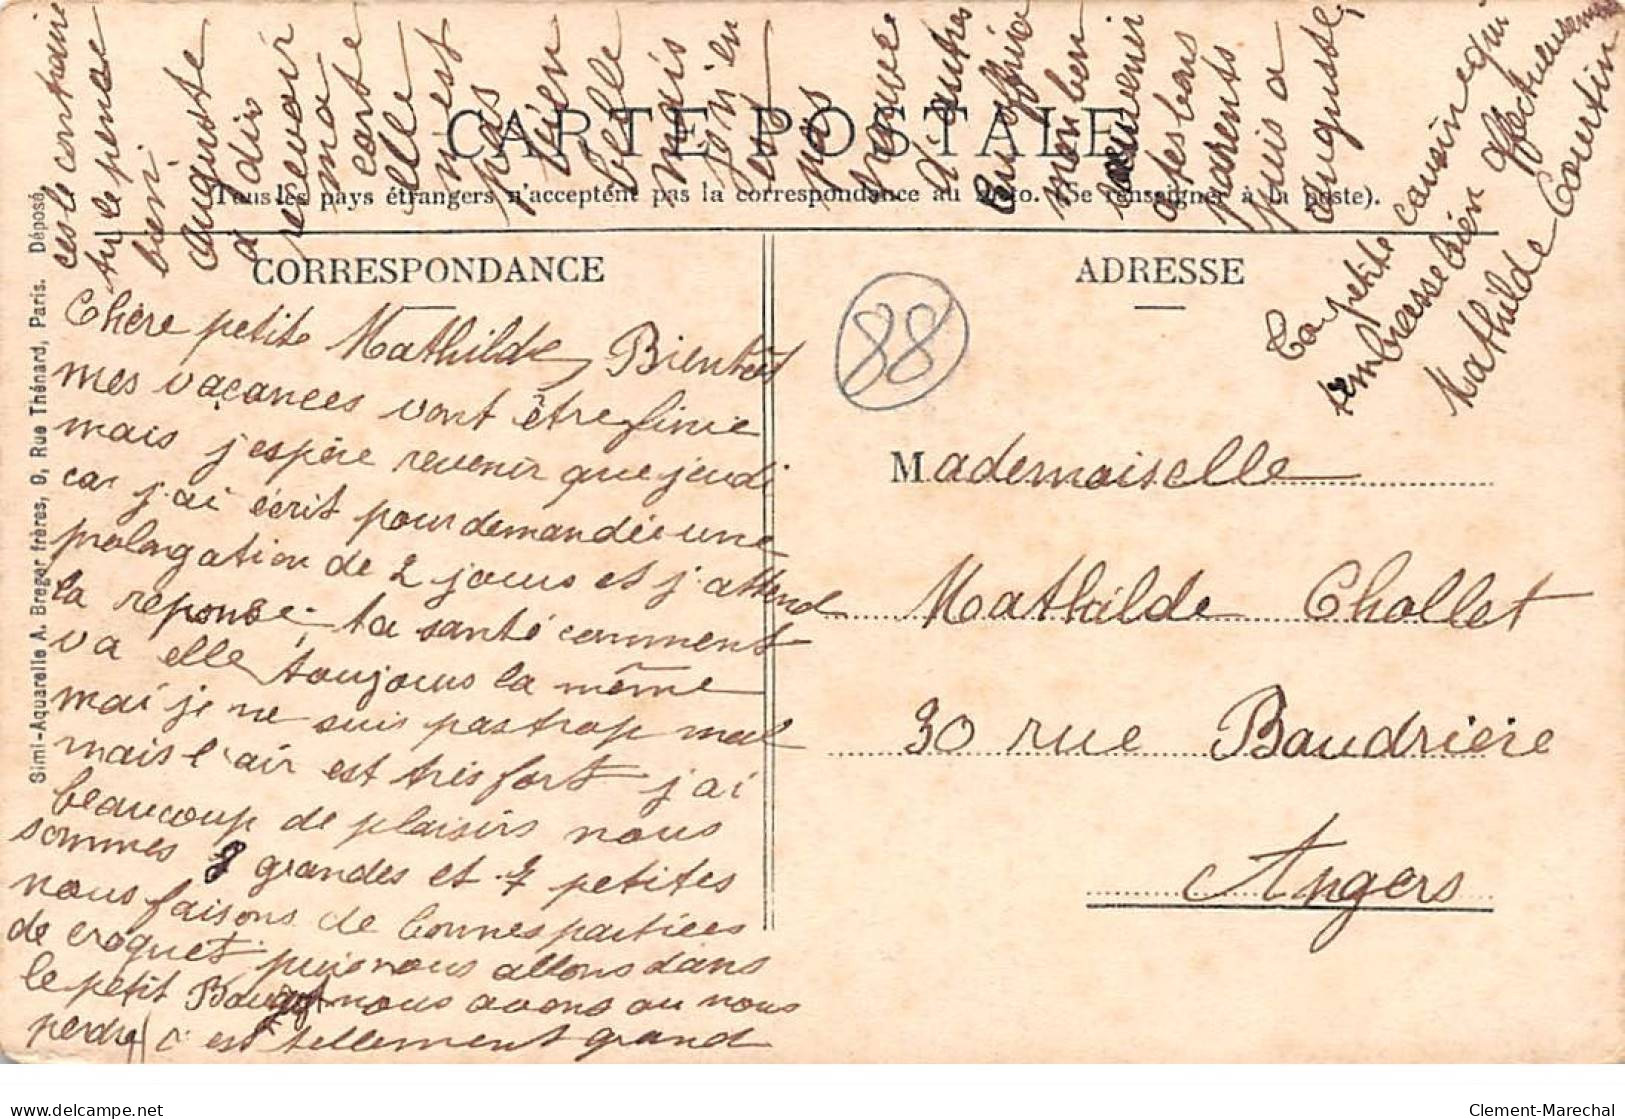 CARTE POSTALE
Tous les pays étrangers n'acceptent pas la correspondance au recto. (Se renseigner à la poste).
CORRESPONDANCE
ADRESSE
Simi-Aquarelle A. Breger frères, 9, Rue Thénard, Paris. Déposé
88
Chère petite Mathilde, Bientôt
mes vacances vont être finie
mais j'espère revenir que jeudi
car j'ai écrit pour demandée une
prolongation de 2 jours et j'attend
la reponse; ta santé comment
va elle, toujours la même
mai je ne suis pas trop mal
mais l'air est très fort j'ai
beaucoup de plaisirs nous
sommes 8 grandes et 7 petites
nous faisons de bonnes partiées
de croquet puis nous allons dans
le petit nous avons ou nous
perdre c'est tellement grand
ces le contraire
tu le pense
bien
Auguste
a dû
revoir
ma
carte
elle
n'est
pas
bien
belle
mais
je n'en
ai
pas
trouvé
d'autres
mon bon
souvenir
a tes bons
parents
puis a
Auguste,
Ta petite cousine qui
t'embrasse bien affectueusement
Mathilde Courtin
Mademoiselle
Mathilde Chollet
30 rue Baudrière
Angers
Clement-Marechal
delcampe.net